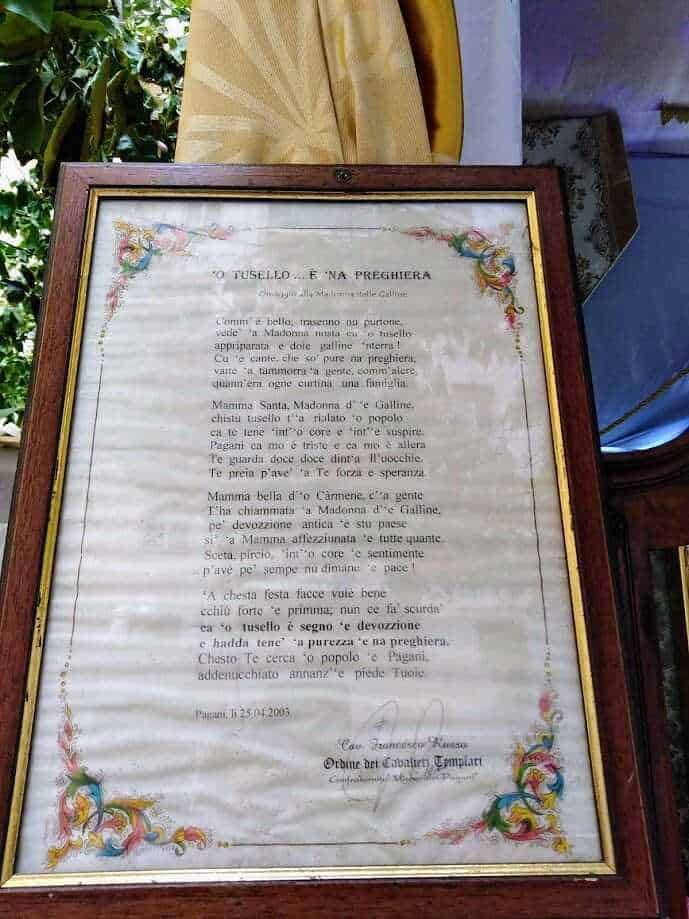 'O TUSELLO ... È 'NA PREGHIERA
Omaggio alla Madonna delle Galline
Comm' è bello, trasenno nu purtone,
vede' 'a Madonna nosta cu 'o tusello
appriparata e doie galline 'nterra !
Cu 'e cante, che so' pure na preghiera,
vatte 'a tammorra 'a gente, comm'aiere,
quann'era ogne curtina una famiglia.
Mamma Santa, Madonna d' 'e Galline,
chistu tusello t''a rialato 'o popolo
ca te tene 'int''o core e 'int''e suspire.
Pagani ca mo è triste e ca mo è allera
Te guarda doce doce dint'a ll'uocchie.
Te preia p'ave' 'a Te forza e speranza.
Mamma bella d''o Càrmene, c''a gente
T'ha chiammata 'a Madonna d''e Galline,
pe' devozzione antica 'e stu paese
si' 'a Mamma affezziunata 'e tutte quante.
Sceta, pirciò, 'int''o core 'e sentimente
p'avé pe' sempe nu dimane 'e pace !
'A chesta festa facce vulé bene
cchiù forte 'e primma; nun ce fa' scurda'
ca 'o tusello è segno 'e devozzione
e hadda tene' 'a purezza 'e na preghiera.
Chesto Te cerca 'o popolo 'e Pagani,
addenucchiato annanz''e piede Tuoie.
Pagani, lì 25.04.2003
Cav. Francesco Russo
Ordine dei Cavalieri Templari
Pagani